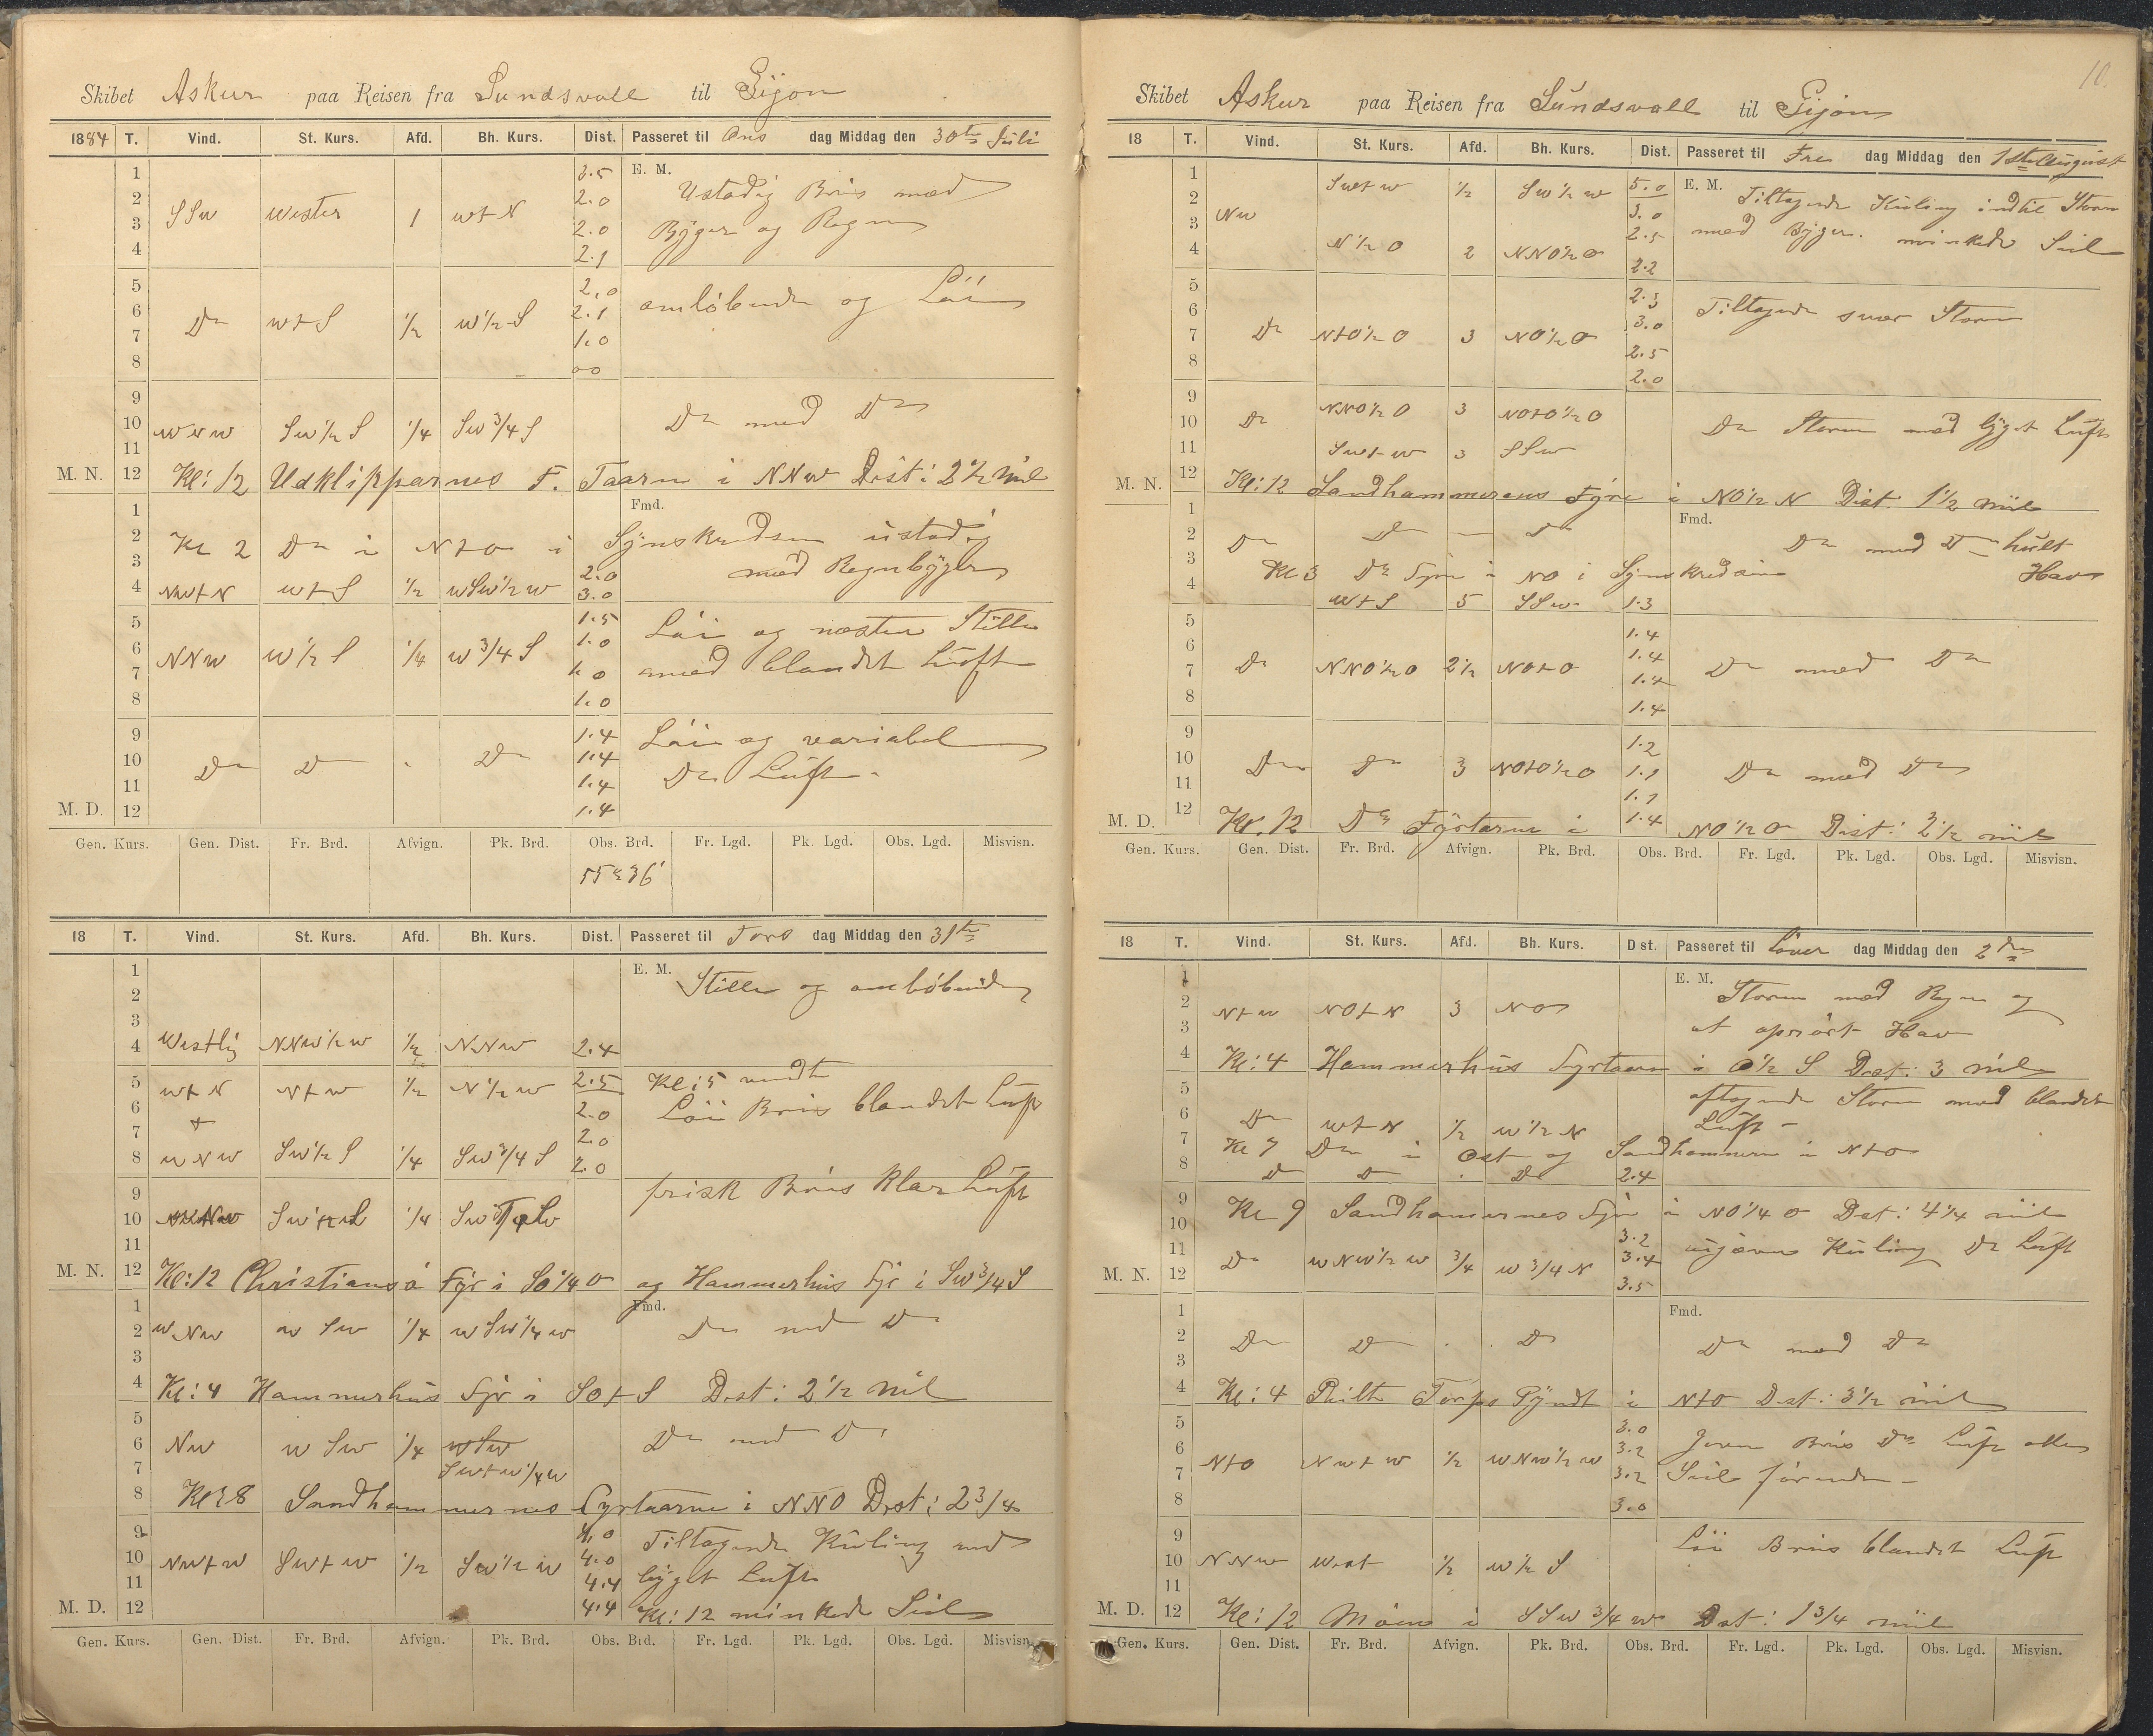 Skibet Askur paa Reisen fra Sundsvall til Gijon
1884 T. Vind. St. Kurs. Afd. Bh. Kurs. Dist. Passeret til Ons dag Middag den 30te Juli
1 3.5 E. M.
2 2.0 Ustadig Bris med
3 SSW Wester 1 W t N 2.0 Byger og Regn
4 2.1
5 2.0 omløbende og Løi
6 Do W t S 1/2 W 1/2 S 2.1
7 1.0
8 00
9
10 WNW SW 1/2 S 1/4 SW 3/4 S Do med Do
11
M. N. 12 Kl: 12 Udklipparnes F. Taarn i NNW Dist: 2 1/2 Mil
1 Fmd.
2 Kl 2 Do i N t O i Synskredsen ustadig
3 2.0 med Regnbyger
4 NW t N W t S 1/2 WSW 1/2 W 3.0
5 1.5 Løi og næsten Stille
6 NNW W 1/2 S 1/4 W 3/4 S 1.0
7 1.0 med blandet Luft
8 1.0
9 1.4 Løi og variabel
10 Do Do - Do 1.4 Do Luft -
11 1.4
M. D. 12 1.4
Gen. Kurs. Gen. Dist. Fr. Brd. Afvign. Pk. Brd. Obs. Brd. Fr. Lgd. Pk. Lgd. Obs. Lgd. Misvisn.
55° 36'
18 T. Vind. St. Kurs. Afd. Bh. Kurs. Dist. Passeret til Tors dag Middag den 31te
1 E. M. Stille og omløbende
2
3
4 Westlig NNW 1/2 W 1/2 NNW 2.4
5 W t N N t W 1/2 N 1/2 W 2.5 Kl: 5 vendte
6 + 2.0 Løi Bris blandet Luft
7 2.0
8 WNW SW 1/2 S 1/4 SW 3/4 S 2.0
9 frisk Bris klar Luft
10 1/4
11
M. N. 12 Kl: 12 Christiansø Fyr i SO 1/4 O og Hammerhus Fyr i SW 3/4 S
1 Fmd.
2 WNW W SW 1/4 WSW 1/4 W Do med Do
3
4 Kl: 4 Hammerhus Fyr i SO t S Dist: 2 1/2 Mil
5
6 NW W SW 1/4 WSW Do med Do
7 SW t W 1/4 W
8 Kl: 8 Sandhammernes Fyrtaarn i NNO Dist: 2 3/4
9 4.0 Tiltagende Kuling med
10 NW t W SW t W 1/2 SW 1/2 W 4.0
11 4.4 byget Luft
M. D. 12 4.4 Kl: 12 minkede Seil
Gen. Kurs. Gen. Dist. Fr. Brd. Afvign. Pk. Brd. Obs. Brd. Fr. Lgd. Pk. Lgd. Obs. Lgd. Misvisn.
10.
Skibet Askur paa Reisen fra Sundsvall til Gijon
18 T. Vind. St. Kurs. Afd. Bh. Kurs. Dist. Passeret til Fre dag Middag den 1ste August
1 SW t W 1/2 SW 1/2 W 5.0 E. M. Tiltagende Kuling indtil Storm
2 NW 3.0
3 2.5 med Byger. minkede Seil
4 N 1/2 O 2 NNO 1/2 O 2.2
5 2.3 Tiltagende svær Storm
6 3.0
7 Do N t O 1/2 O 3 NO 1/2 O 2.5
8 2.0
9 NNO 1/2 O 3 NO t O 1/2 O
10 Do Do Storm med byget Luft
11 SW t W 3 SSW
M. N. 12 Kl: 12 Sandhammerens Fyr i NO 1/2 N Dist. 1 1/2 Miil
1 Fmd.
2 Do Do - Do Do med Do hult
3 Kl 3 Do Fyr i NO i Synskredsen Hav
4 W t S 5 SSW 1.3
5 1.4
6 1.4
7 Do NNO 1/2 O 2 1/2 NO t O 1.4 Do med Do
8 1.4
9 1.2
10 Do Do 3 NO t O 1/2 O 1.1 Do med Do
11 1.1
M. D. 12 Kl. 12 Do Fyrtarn i 1.4 NO 1/2 O Dist: 3 1/2 miil
Gen. Kurs. Gen. Dist. Fr. Brd. Afvign. Pk. Brd. Obs. Brd. Fr. Lgd. Pk. Lgd. Obs. Lgd. Misvisn.
18 T. Vind. St. Kurs. Afd. Bh. Kurs. Dist. Passeret til Løver dag Middag den 2den
1 E. M. Storm med Regn og
2 N t W NO t N 3 NO
3 et oprørt Hav
4 Kl: 4 Hammerhus Fyrtaarn i O 1/2 S Dist: 3 mil
5 aftagende Storm med blandet
6 Do W t N 1/2 W 1/2 N Luft -
7 Kl 7 Do i Ost og Sandhammern i N t O
8 Do Do . Do 2.4
9 Kl 9 Sandhamernes Fyr i NO 1/4 O Dist: 4 1/4 mil
10 3.2
11 Do WNW 1/2 W 3/4 W 3/4 N 3.4 ujævn Kuling Do Luft
M. N. 12 3.5
1 Fmd.
2 Do Do . Do Do med Do
3
4 Kl: 4 Torps i N t O Dist: 3 1/2 mil
5 3.0
6 N t O NW t W 1/2 WNW 1/2 W 3.2 Jevn Bris Do Luft alle
7 3.2 Seil førende -
8 3.0
9 Løi Bris blandet Luft
10 NNW West 1/2 W 1/2 S
11
M. D. 12 Kl: 12 Møen i SSW 3/4 W Dist: 1 3/4 miil
Gen. Kurs. Gen. Dist. Fr. Brd. Afvign. Pk. Brd. Obs. Brd. Fr. Lgd. Pk. Lgd. Obs. Lgd. Misvisn.